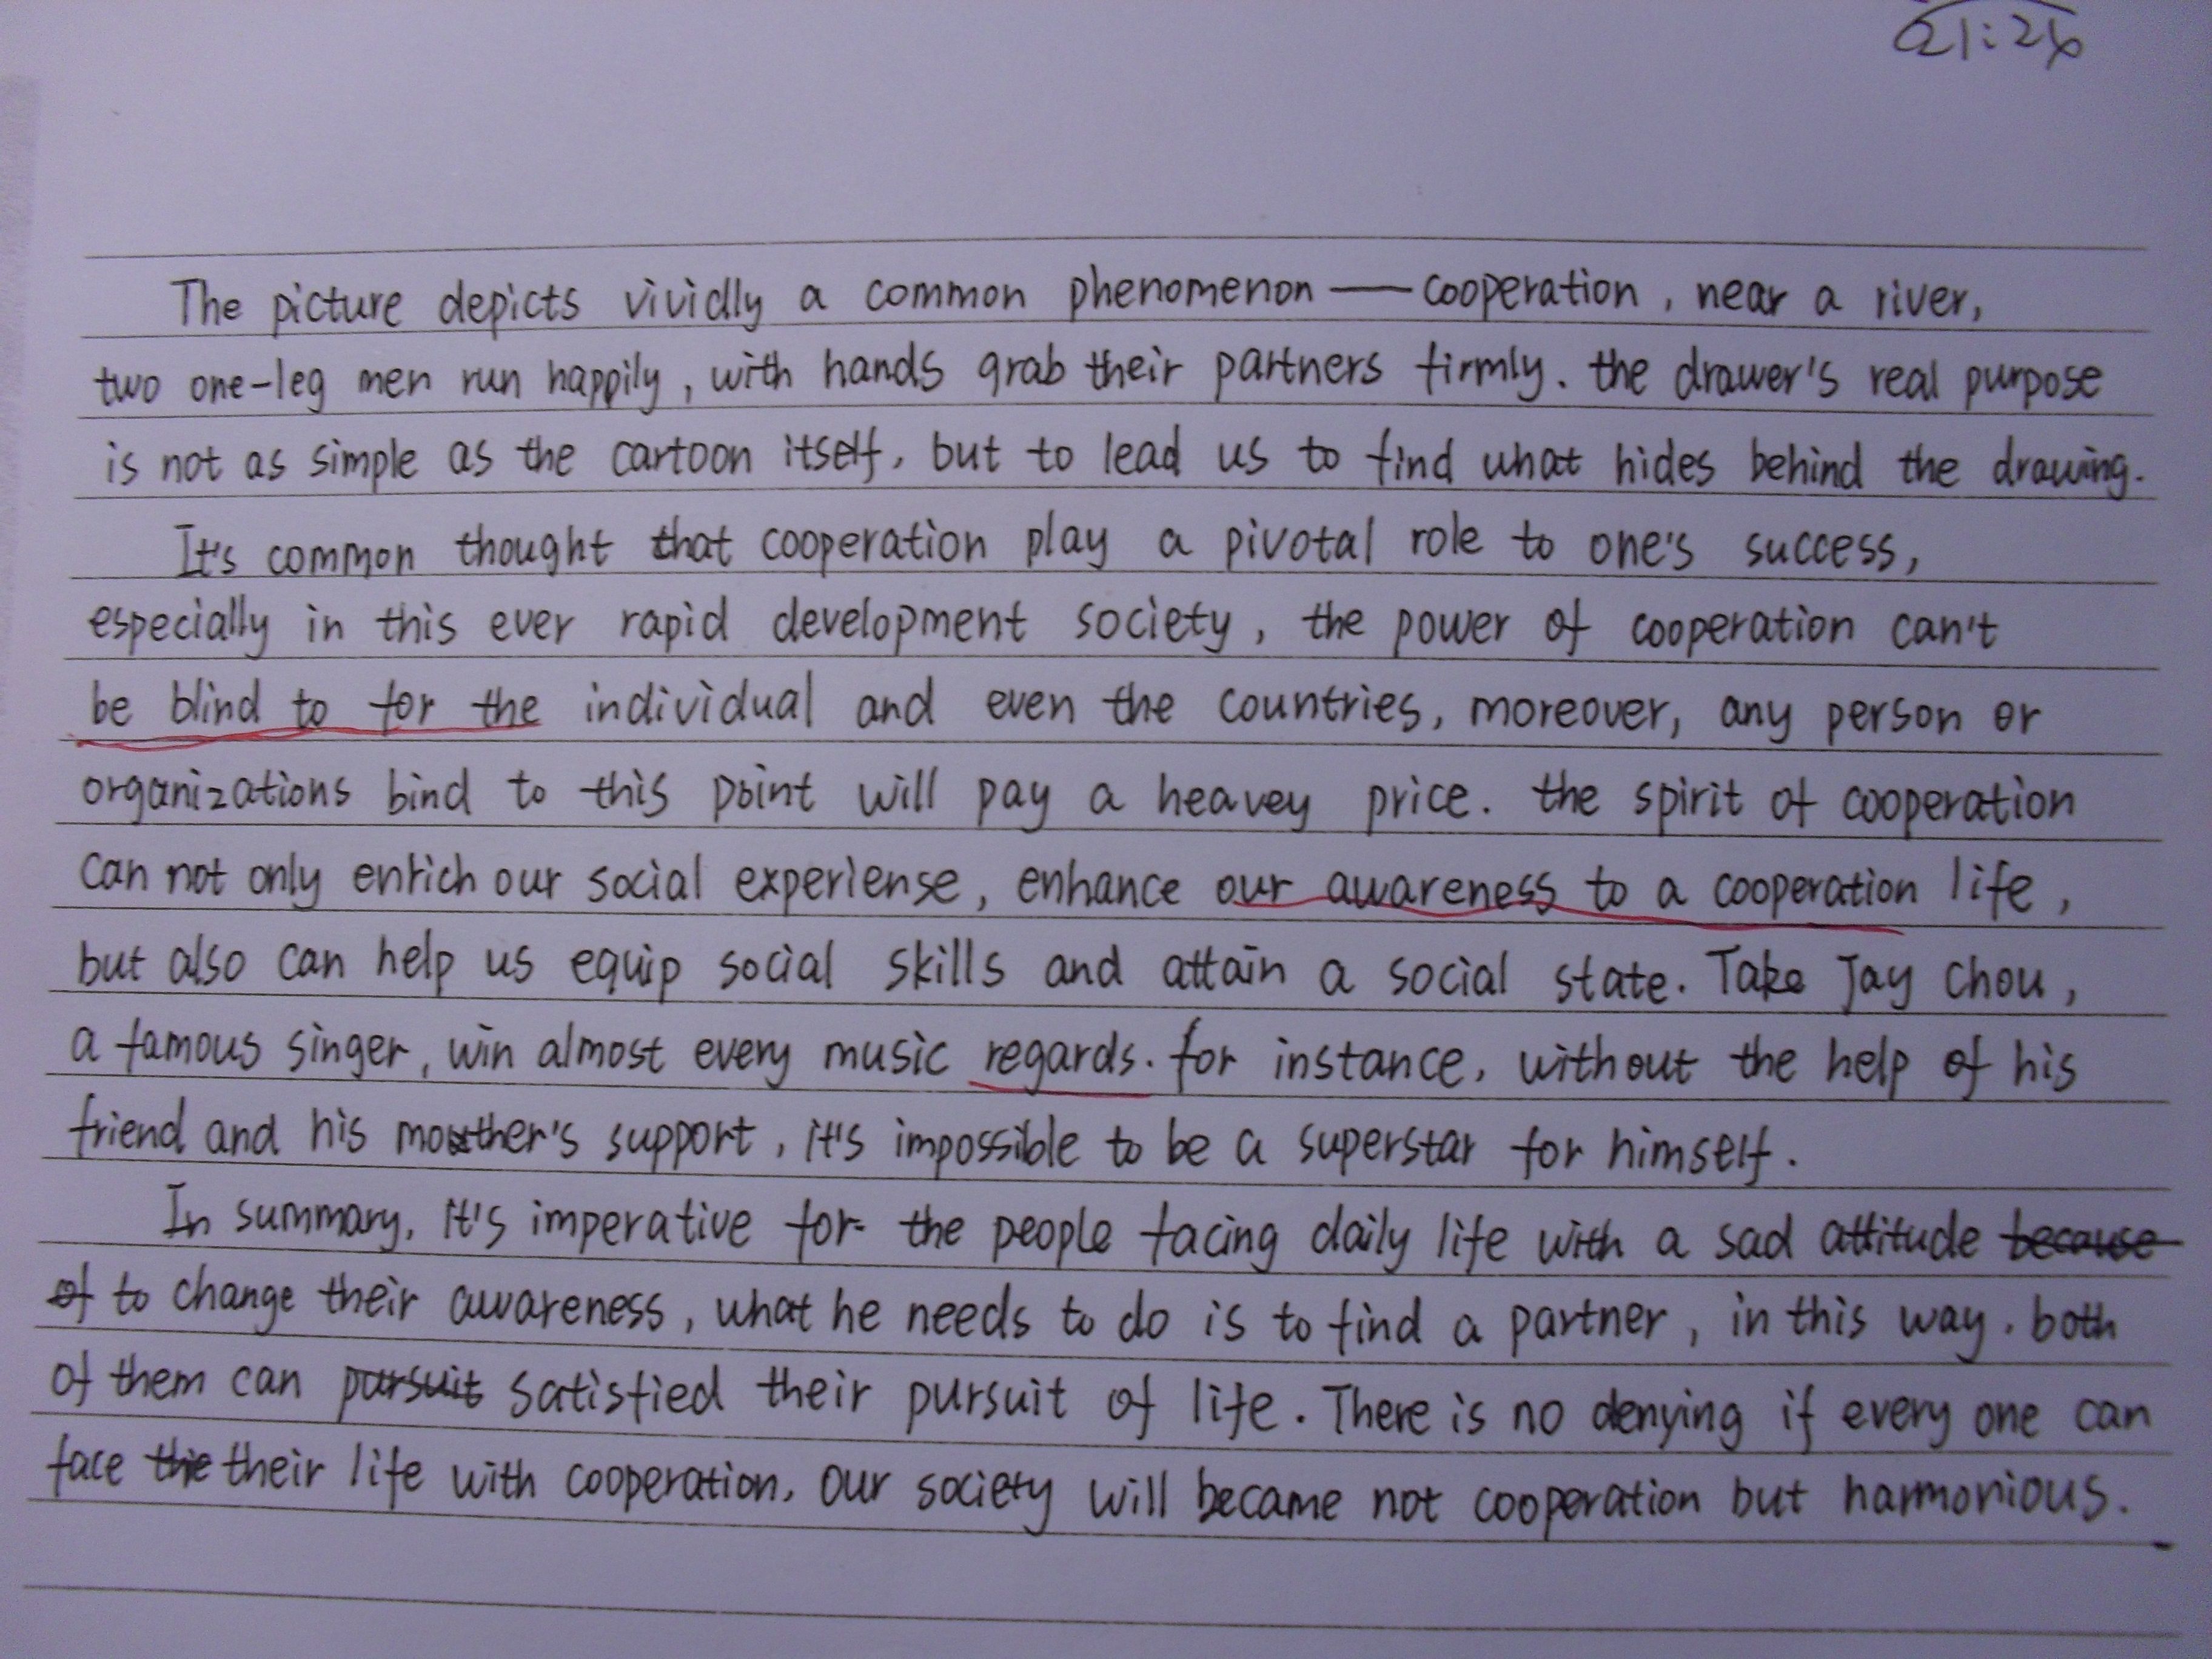 21:26
The picture depicts vividly a common phenomenon — cooperation, near a river,
two one-leg men run happily, with hands grab their partners firmly. the drawer's real purpose
is not as simple as the cartoon itself, but to lead us to find what hides behind the drawing.
It's common thought that cooperation play a pivotal role to one's success,
especially in this ever rapid development society, the power of cooperation can't
be blind to for the individual and even the countries, moreover, any person or
organizations bind to this point will pay a heavey price. the spirit of cooperation
can not only enrich our social experiense, enhance our awareness to a cooperation life,
but also can help us equip social skills and attain a social state. Take Jay Chou,
a famous singer, win almost every music regards. for instance, without the help of his
friend and his mother's support, it's impossible to be a superstar for himself.
In summary, it's imperative for the people facing daily life with a sad attitude because
of to change their awareness, what he needs to do is to find a partner, in this way, both
of them can pursuit satisfied their pursuit of life. There is no denying if every one can
face the their life with cooperation, our society will became not cooperation but harmonious.